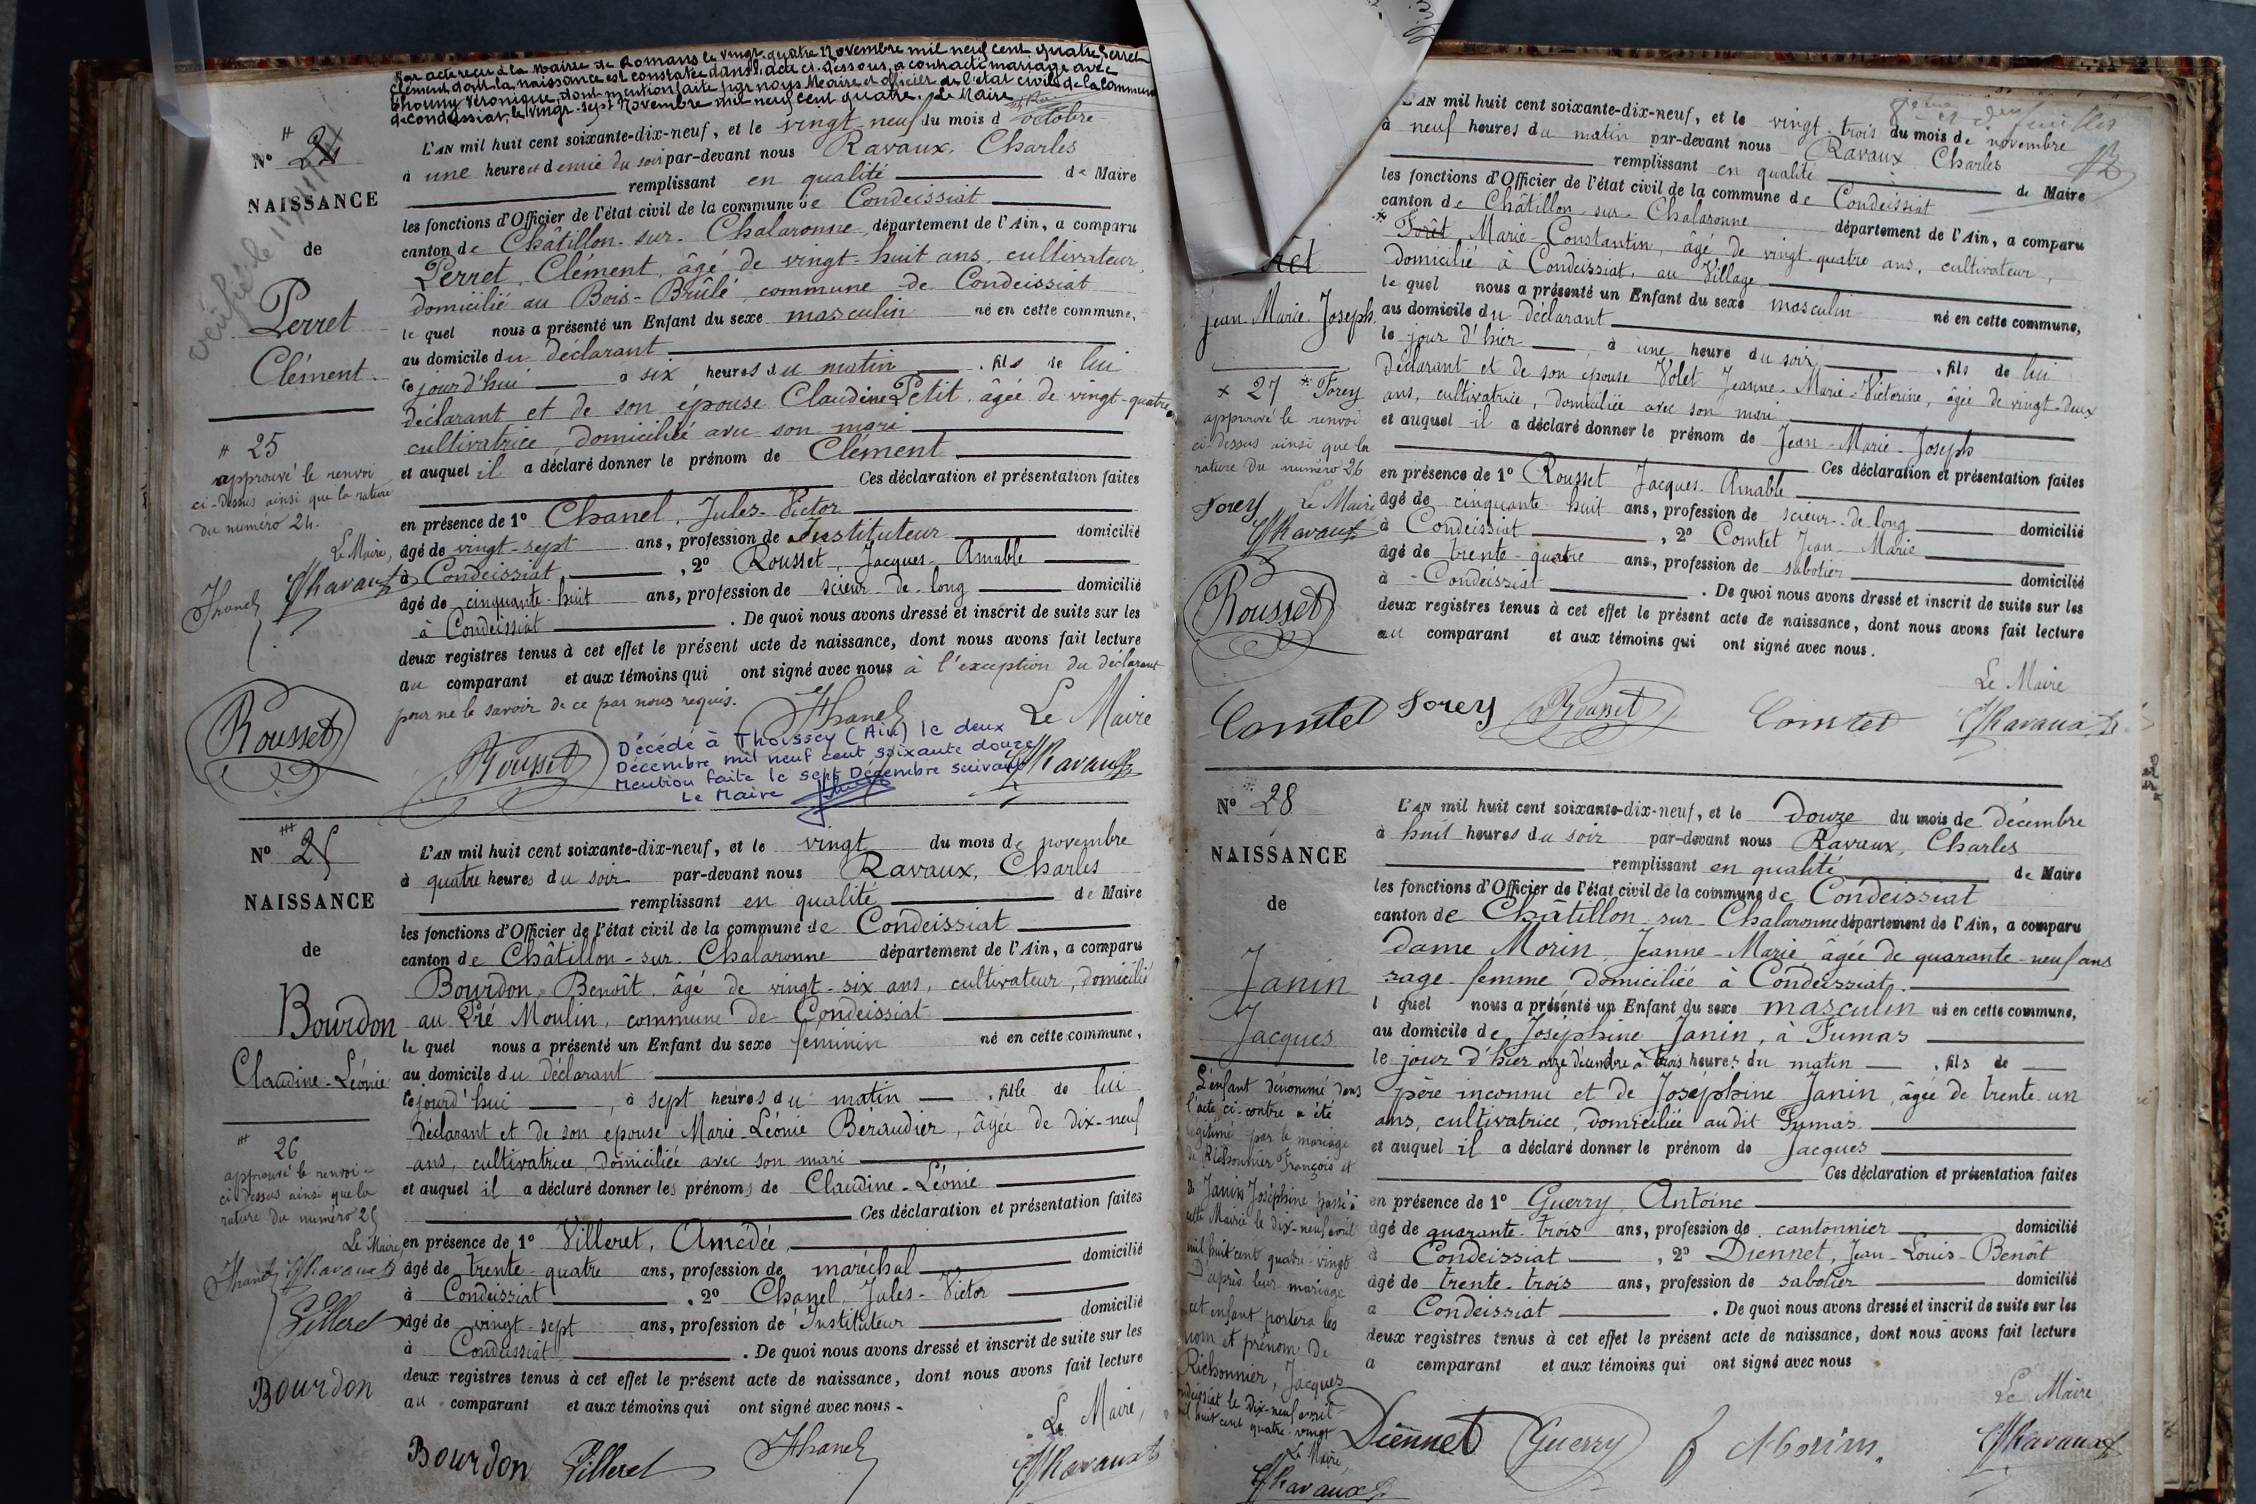 Par acte reçu à la Mairie de Romans le vingt-quatre Novembre mil neuf cent quatre, Perret
Clément dont la naissance est constatée dans l'acte ci-dessous, a contracté mariage avec
Véronique, dont mention faite par nous Maire et officier de l'état civil de la commune
de Condeissiat, le vingt-sept Novembre mil neuf cent quatre. Le Maire
N° 24
NAISSANCE
de
Perret
Clément
# 25
approuvé le renvoi
ci-dessus ainsi que la rature
du numéro 24.
Le Maire,
JChanel CRavaux
Rousset
L'AN mil huit cent soixante-dix-neuf, et le vingt neuf du mois d'octobre
à une heure et demie du soir par-devant nous Ravaux, Charles
remplissant en qualité de Maire
les fonctions d'Officier de l'état civil de la commune de Condeissiat
canton de Châtillon-sur-Chalaronne, département de l'Ain, a comparu
Perret, Clément, âgé de vingt-huit ans, cultivateur,
domicilié au Bois-Brûlé, commune de Condeissiat
le quel nous a présenté un Enfant du sexe masculin né en cette commune,
au domicile du déclarant
ce jourd'hui à six heures du matin, fils de lui
déclarant et de son épouse Claudine Petit, âgée de vingt-quatre
cultivatrice, domiciliée avec son mari
et auquel il a déclaré donner le prénom de Clément
Ces déclaration et présentation faites
en présence de 1° Chanel, Jules-Victor
âgé de vingt-sept ans, profession de Instituteur domicilié
à Condeissiat, 2° Rousset, Jacques-Amable
âgé de cinquante-huit ans, profession de scieur-de-long domicilié
à Condeissiat. De quoi nous avons dressé et inscrit de suite sur les
deux registres tenus à cet effet le présent acte de naissance, dont nous avons fait lecture
au comparant et aux témoins qui ont signé avec nous à l'exception du déclarant
pour ne le savoir de ce par nous requis.
JChanel Le Maire
Rousset CRavaux
Décédé à Thoissey (Ain) le deux
Décembre mil neuf cent soixante douze
Mention faite le sept Décembre suivant
Le Maire
N° 25
NAISSANCE
de
Bourdon
Claudine-Léonie
26
approuvé le renvoi
ci-dessus ainsi que la
rature du numéro 25
Le Maire
JChanel CRavaux
Villeret
Bourdon
L'AN mil huit cent soixante-dix-neuf, et le vingt du mois de novembre
à quatre heures du soir par-devant nous Ravaux, Charles
remplissant en qualité de Maire
les fonctions d'Officier de l'état civil de la commune de Condeissiat
canton de Châtillon-sur-Chalaronne département de l'Ain, a comparu
Bourdon, Benoît, âgé de vingt-six ans, cultivateur, domicilié
au Pré Moulin, commune de Condeissiat
le quel nous a présenté un Enfant du sexe feminin né en cette commune,
au domicile du déclarant
ce jourd'hui, à sept heures du matin, fille de lui
déclarant et de son epouse Marie-Léonie Béraudier, âgée de dix-neuf
ans, cultivatrice, domiciliée avec son mari
et auquel il a déclaré donner les prénoms de Claudine-Léonie
Ces déclaration et présentation faites
en présence de 1° Villeret, Amédée,
âgé de trente-quatre ans, profession de maréchal domicilié
à Condeissiat, 2° Chanel, Jules-Victor
âgé de vingt-sept ans, profession de Instituteur domicilié
à Condeissiat. De quoi nous avons dressé et inscrit de suite sur les
deux registres tenus à cet effet le présent acte de naissance, dont nous avons fait lecture
au comparant et aux témoins qui ont signé avec nous.
Le Maire,
Bourdon Villeret JChanel CRavaux
Jean Marie Joseph
x 27 Forey
approuvé le renvoi
ci-dessus ainsi que la
rature du numéro 26
Forey Le Maire
CRavaux
Rousset
L'AN mil huit cent soixante-dix-neuf, et le vingt-trois du mois de novembre
à neuf heures du matin par-devant nous Ravaux Charles
remplissant en qualité de Maire
les fonctions d'Officier de l'état civil de la commune de Condeissiat
canton de Châtillon-sur-Chalaronne département de l'Ain, a comparu
Forêt, Marie-Constantin, âgé de vingt-quatre ans, cultivateur,
domicilié à Condeissiat, au Village
le quel nous a présenté un Enfant du sexe masculin né en cette commune,
au domicile du déclarant
le jour d'hier, à une heure du soir, fils de lui
déclarant et de son épouse Volet Jeanne-Marie-Victorine, âgée de vingt-deux
ans, cultivatrice, domiciliée avec son mari
et auquel il a déclaré donner le prénom de Jean-Marie-Joseph
Ces déclaration et présentation faites
en présence de 1° Rousset Jacques-Amable
âgé de cinquante-huit ans, profession de scieur-de-long domicilié
à Condeissiat, 2° Comtet Jean-Marie
âgé de trente-quatre ans, profession de sabotier domicilié
à Condeissiat. De quoi nous avons dressé et inscrit de suite sur les
deux registres tenus à cet effet le présent acte de naissance, dont nous avons fait lecture
au comparant et aux témoins qui ont signé avec nous.
Le Maire
Comtet Forey Rousset Comtet CRavaux
N° 28
NAISSANCE
de
Janin
Jacques
L'enfant dénommé dans
l'acte ci-contre a été
légitimé par le mariage
de Richonnier François et
de Janin Joséphine passé à
cette Mairie le dix-neuf avril
mil huit cent quatre-vingt
D'après leur mariage
cet enfant portera les
nom et prénom de
Richonnier, Jacques
Condeissiat le dix-neuf avril
mil huit cent quatre-vingt
Le Maire,
CRavaux
L'AN mil huit cent soixante-dix-neuf, et le douze du mois de décembre
à huit heures du soir par-devant nous Ravaux, Charles
remplissant en qualité de Maire
les fonctions d'Officier de l'état civil de la commune de Condeissiat
canton de Châtillon-sur-Chalaronne département de l'Ain, a comparu
dame Morin, Jeanne-Marie âgée de quarante-neuf ans
sage-femme domiciliée à Condeissiat.
l quel nous a présenté un Enfant du sexe masculin né en cette commune,
au domicile de Joséphine Janin, à Fumas
le jour d'hier onze décembre à trois heures du matin, fils de
père inconnu et de Joséphine Janin, âgée de trente-un
ans, cultivatrice, domiciliée audit Fumas
et auquel il a déclaré donner le prénom de Jacques
Ces déclaration et présentation faites
en présence de 1° Guerry, Antoine
âgé de quarante-trois ans, profession de cantonnier domicilié
à Condeissiat, 2° Diennet, Jean-Louis-Benoît
âgé de trente-trois ans, profession de sabotier domicilié
a Condeissiat. De quoi nous avons dressé et inscrit de suite sur les
deux registres tenus à cet effet le présent acte de naissance, dont nous avons fait lecture
a comparant et aux témoins qui ont signé avec nous
Le Maire
Diennet Guerry f Morin. CRavaux